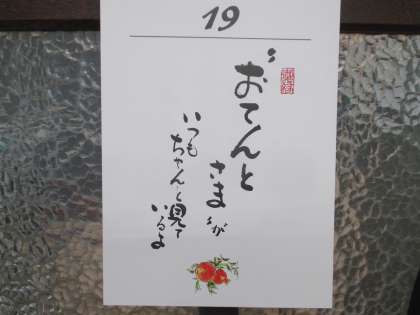 19
おてんと
さまが
いつも
ちゃんと見て
いるよ